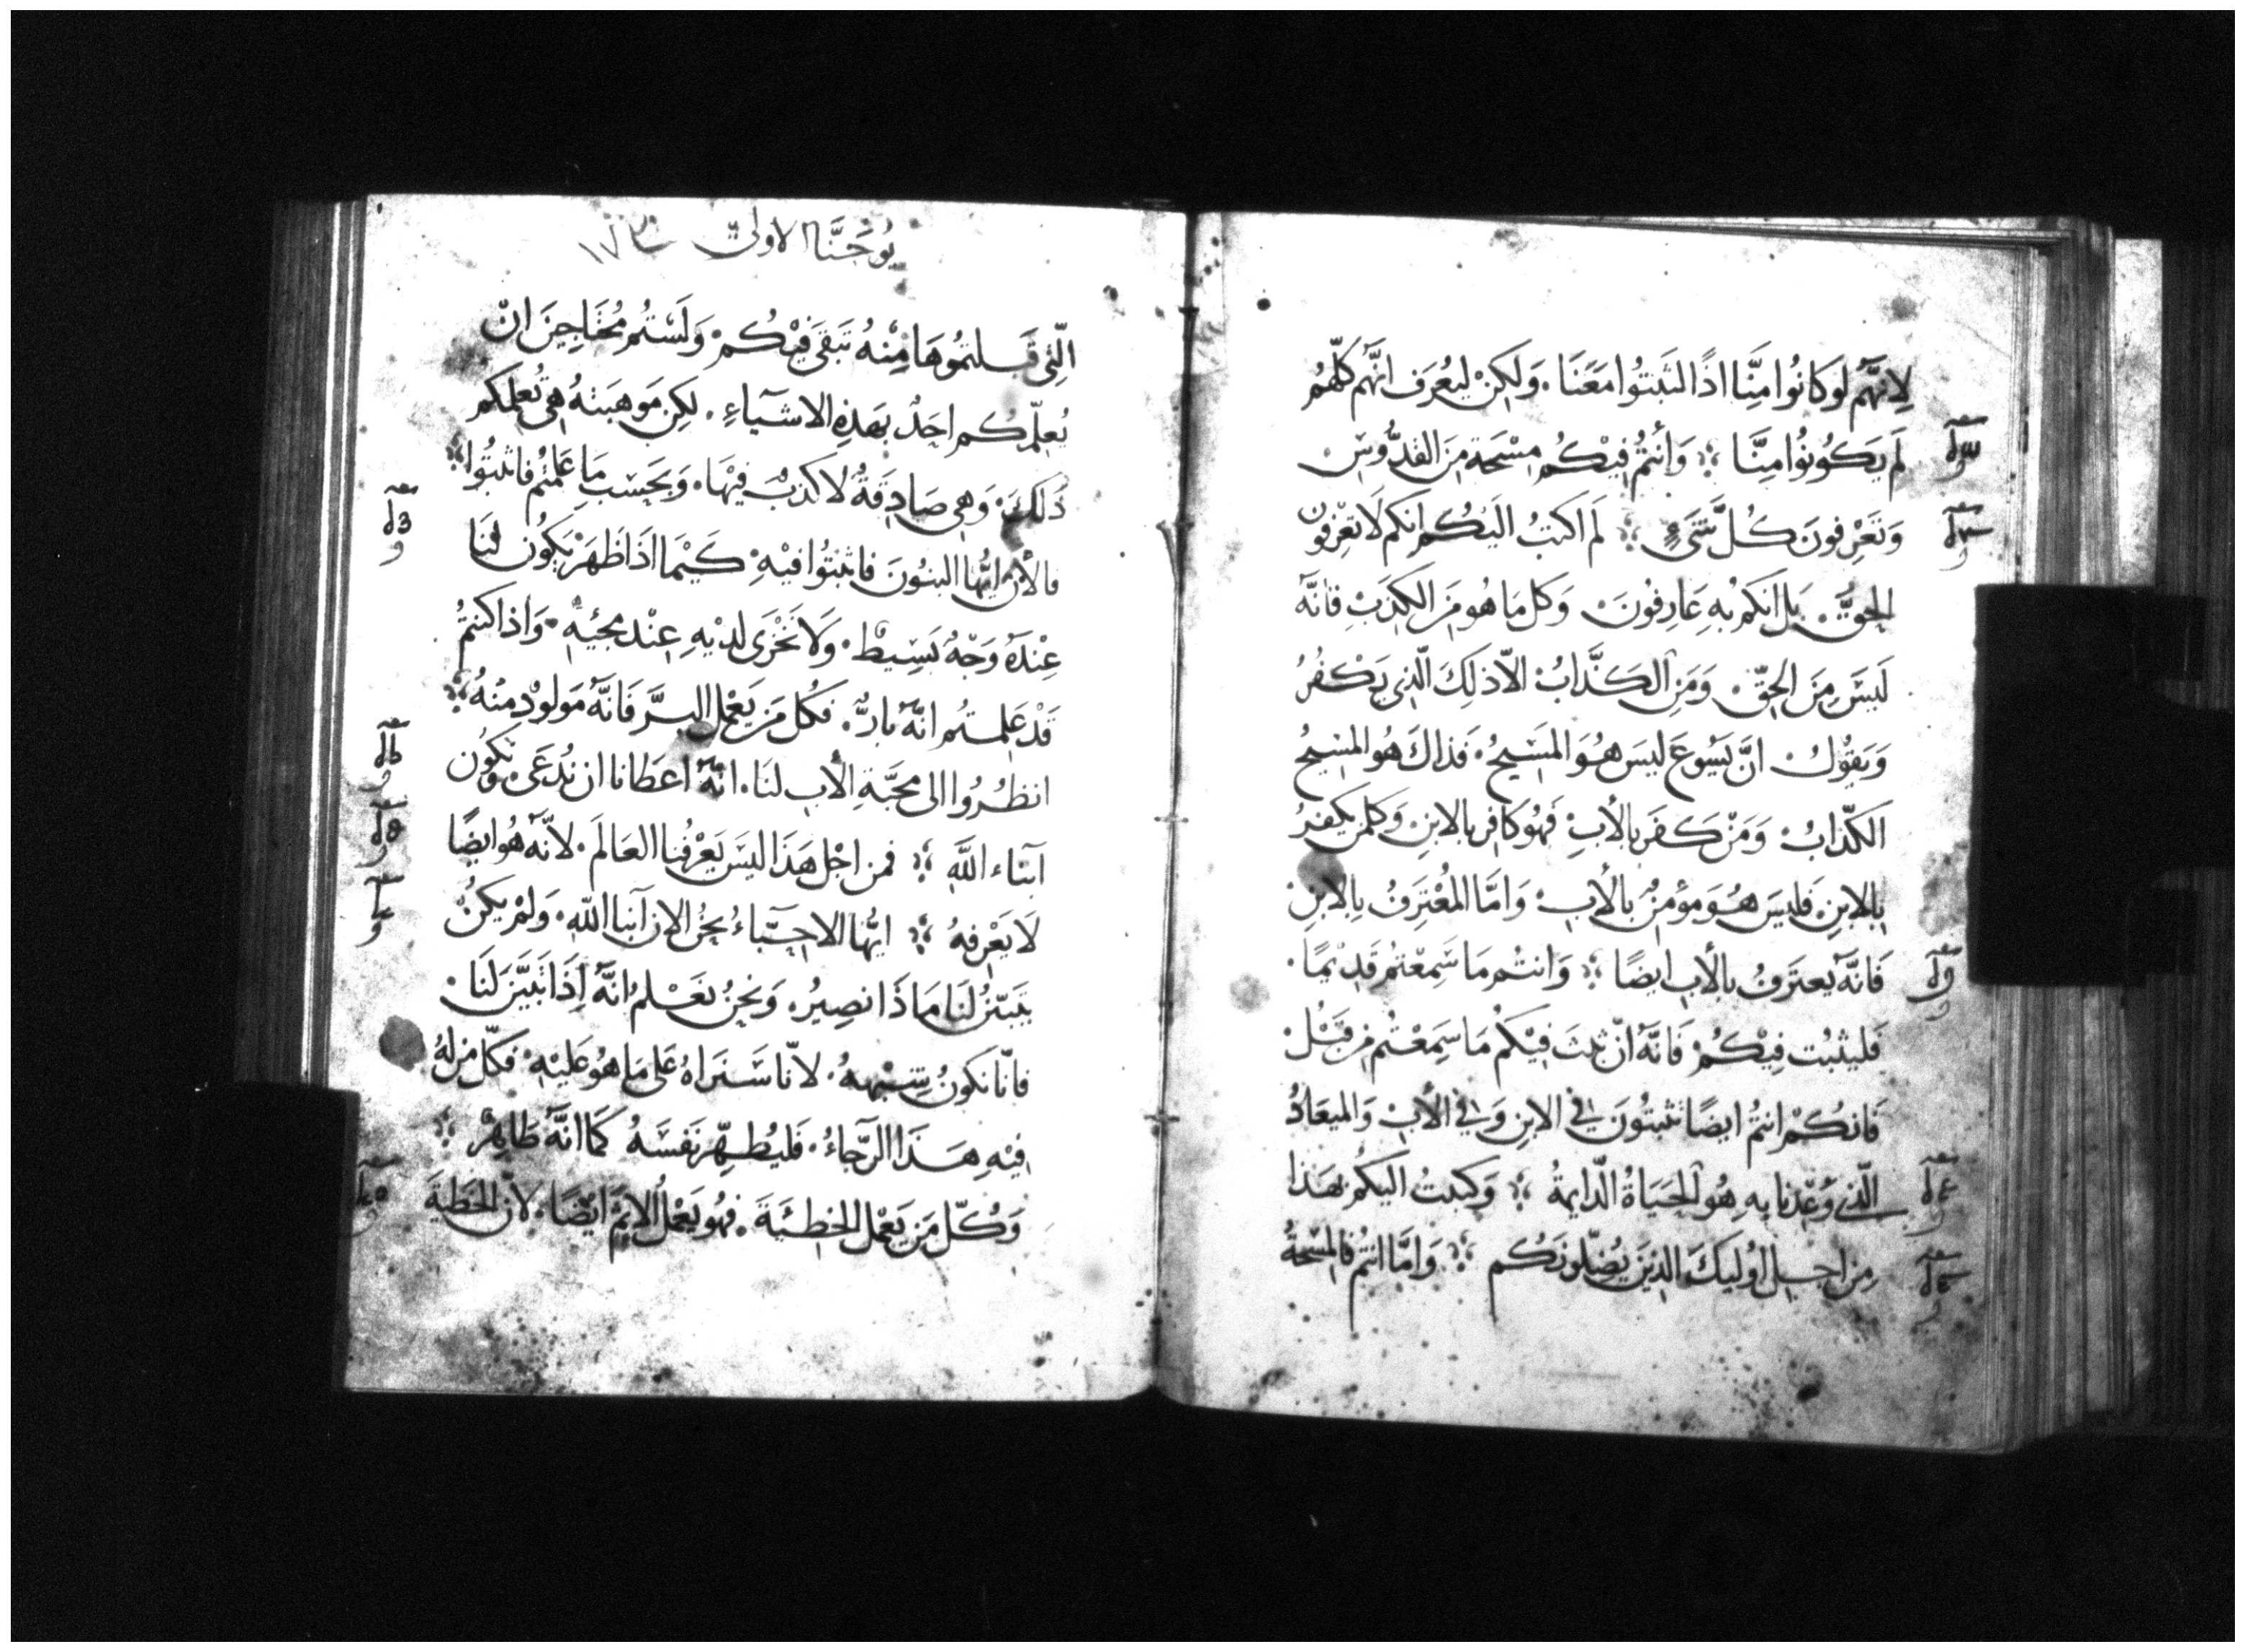 لِانهَّم لَوكَانُوا مِنَّا اذًا لثَبتُوا مَعَنَا. وَلَكِنْ ليُعْرَف انهَّم كلّهُم
لَم يَكوُنوُا مِنَّا وَأنتمُ فِيْكُم مِسْحَة مِنَ القدُّوسِ
وَتَعْرِفونَ كُلَّ شَىءٍ لَم اكتبُ اليَكُم انكم لَا تعْرفون
الحقَّ. بَل انكم بهِ عَارِفُونَ. وَكل مَا هُو مَن الكذبْ فانَّه
لَيسَ مِنَ الحقّ. وَمَنِ الكَذَّابُ الاّ ذلِكَ الّذِي يَكفُرُ
وَيَقوُل انَّ يَسُوعَ ليسَ هُوَ المَسَيحُ. فَذاكَ هُو المسِيحُ
الكذّابُ وَمَنْ كَفرَ بالأبِ فَهُو كافِر بالابنِ وَكلمن يكفرُ
بالابنِ فَليسَ هُوَ مؤمنٌ بالأبِ وَامَّا المُعْتَرِفُ بِالابنِ
فَانَّه يعتَرفُ بالأبِ ايضًا وَانتُم مَا سَمِعْتمُ قَدِيْمًا.
فَليثبُت فِيْكُمْ فَانَّهَ انّ ثبتَ فِيْكُم مَا سَمِعْتُم مِن قَبْل
فَانكُم انتمُ ايضًا تثبتُونَ فِي الابنِ وَفِي الأبِ وَالميعَادُ
الّذي وُعدنا بهِ هُو الحَيَاةُ الدّايمةُ وَكتبتُ اليكمُ بهَذا
مِن اجل اوُليكَ الذِينَ يُضلّونَكُم وَامَّا انتمُ فالمسْحةُ
يُوحَنَّا الاولىَ
الّتِى قَبلتمُوهَا مِنْهُ تَبقىَ فِيْكُم وَلَسْتُم مُحْتَاجِينَ انْ
يُعلّمكُم احَدٌ بهَذهِ الاشيَآءِ. لكِن مَوهبَتهُ هِى تُعلمكم
ذَلكَ. وَهِى صَادِقةٌ لا كذبَ فِيْهَا. وَبحَسْبِ مَا عَلمّتمُ فاثبتُوا
فالأن ايُّها البنُونَ فاثبتُوا فِيْهِ كيَمْا اذَا ظَهَرْ يَكُون لَنَا
عِنْدَهُ وَجْهٌ بَسِيْطٌ. وَلَا نَخْزَى لديْهِ عِنْد مجيْئهِ. وَاذا كنتمُ
قَدْ عَلِمتُم انَّهَ بارٌّ. فكُل مَن يَعْمل البرَّ فَانَّهَ مَولوُد مِنهُ
انظُرُوا الى محَبَّةِ الأب لنَا. انَّهَ اعطَانا ان نُدعَى وَنكُون
آبناء اللَّهِ فمن اجْل هَذَا ليسَ يَعْرفُنا العَالَم. لانَّه هُو ايضًا
لَا يَعْرفهُ ايُّها الاحبَّاءُ نحنُ الان آبنا اللّه. وَلمْ يكنْ
يَتبيّن لَنَا مَاذَا نصِيرُ. وَنحنُ نعْلمُ انَّهَ اِذَا تبَيَّنَ لَنَا.
فانّا نكوُنُ شِبْههُ. لانّا سَنراهُ عَلى مَا هُو عَليْهِ فكلّ من لهُ
فِيْهِ هَذَا الرّجَاءُ. فَليُطهِّر نَفسَهُ كمَا انَّه طَاهِرٌ
وَكُلّ مَن يَعْمل الخطيئَةَ. فهُو يَعْمل الاِثمَ ايْضًا. لانّ الخطيَةَ